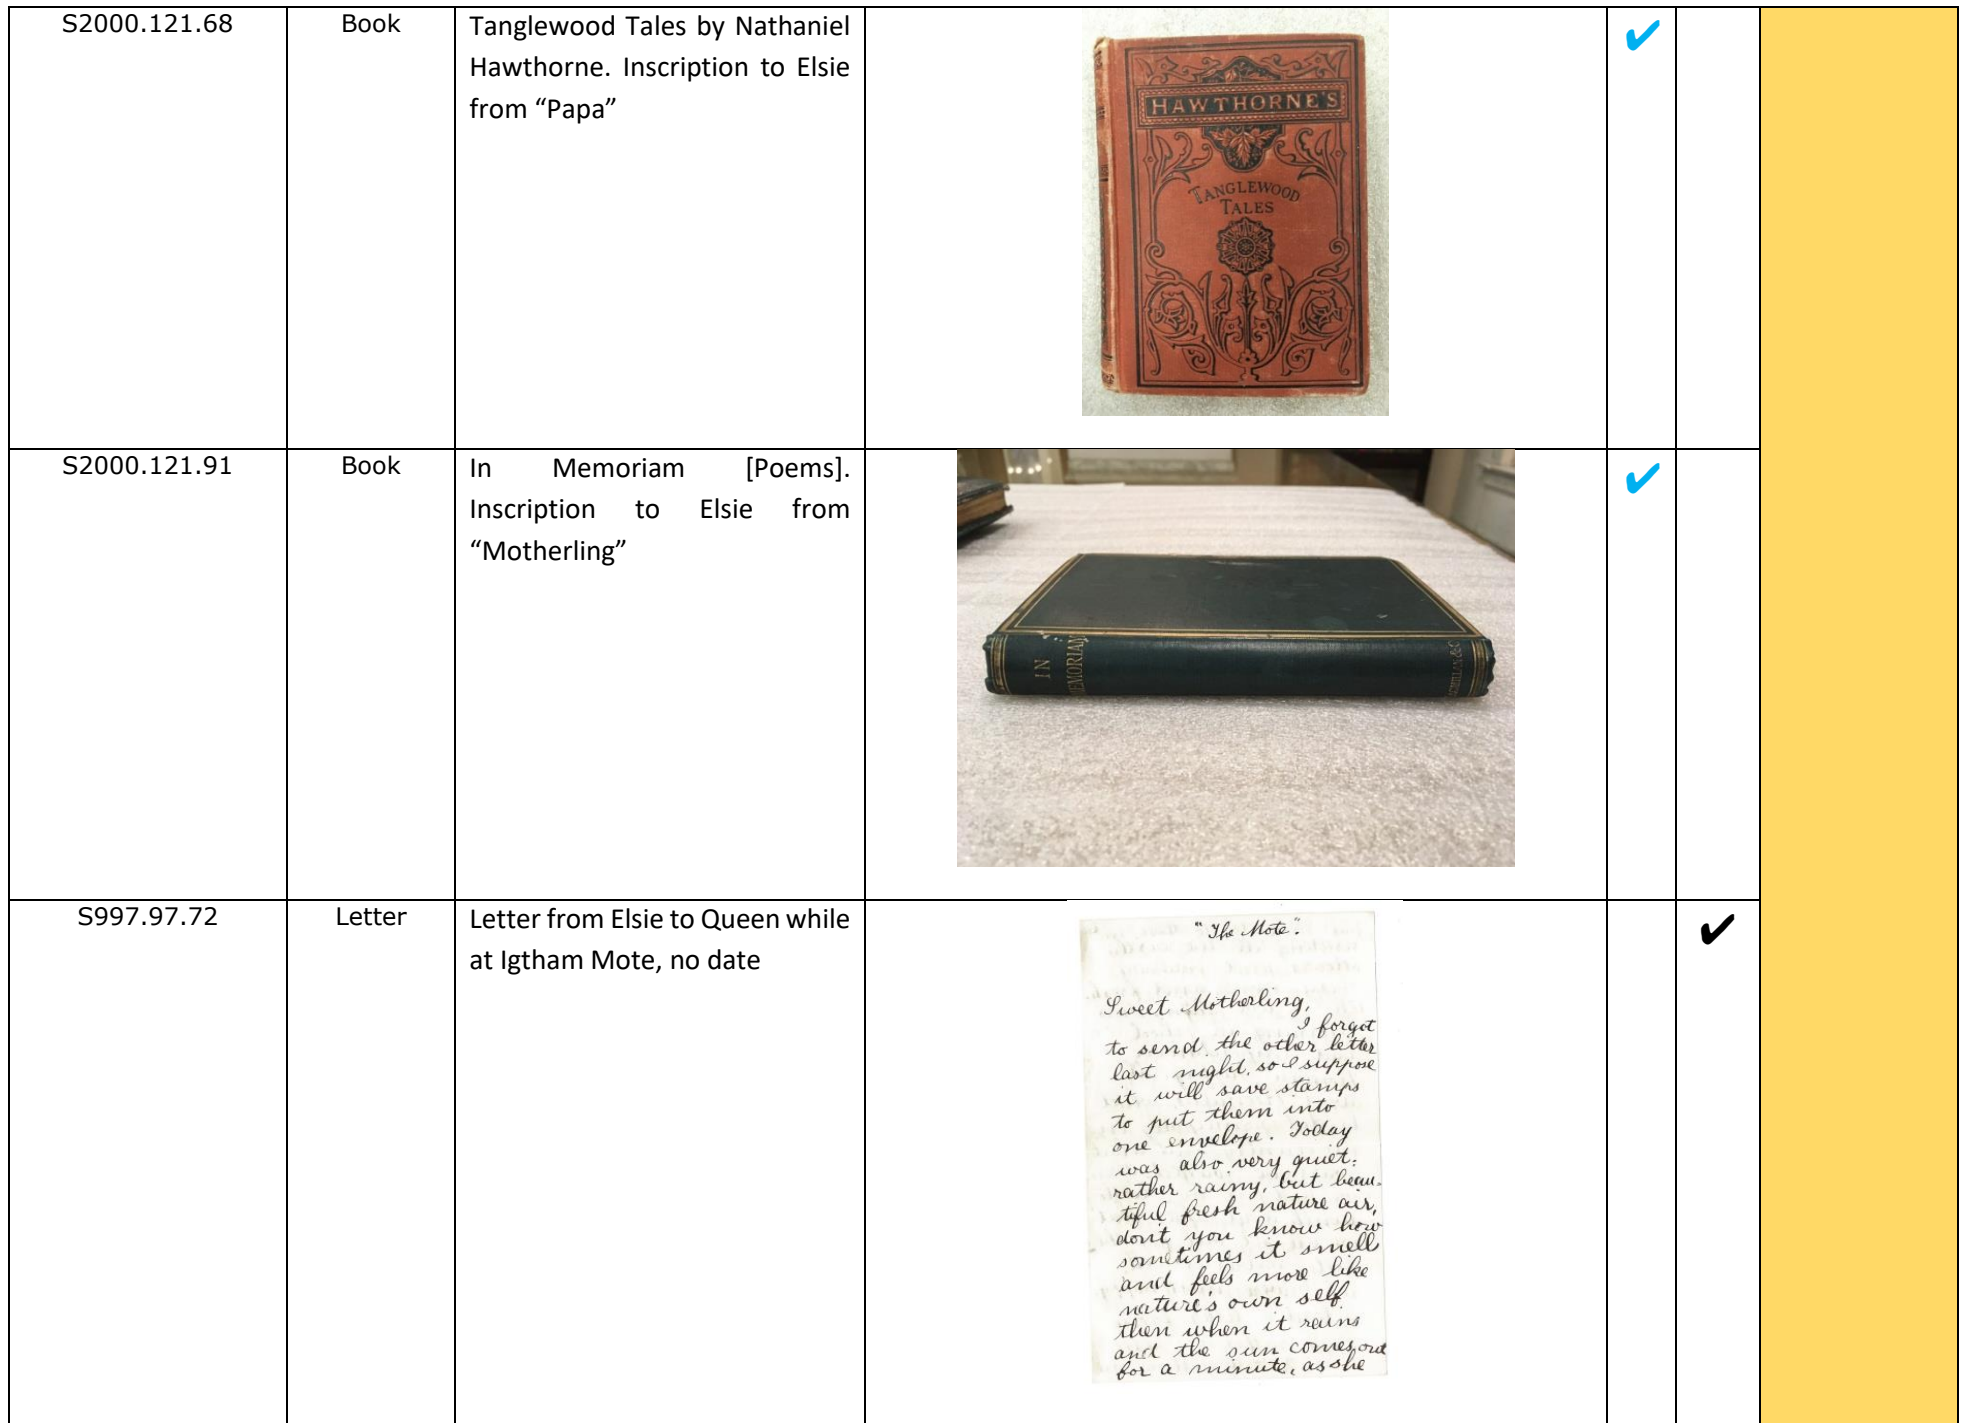 S2000.121.68
Book
Tanglewood Tales by Nathaniel
Hawthorne. Inscription to Elsie
from “Papa”
HAWTHORNE'S
TANGLEWOOD
TALES
S2000.121.91
Book
In Memoriam [Poems].
Inscription to Elsie from
“Motherling”
IN
MEMORIAM
S997.97.72
Letter
Letter from Elsie to Queen while
at Igtham Mote, no date
"The Mote".
Sweet Motherling,
I forgot
to send the other letter
last night, so I suppose
it will save stamps
to put them into
one envelope. Today
was also very quiet:
rather rainy, but beau-
tiful fresh nature air,
dont you know how
sometimes it smell
and feels more like
nature's own self
then when it rains
and the sun comes out
for a minute, as she